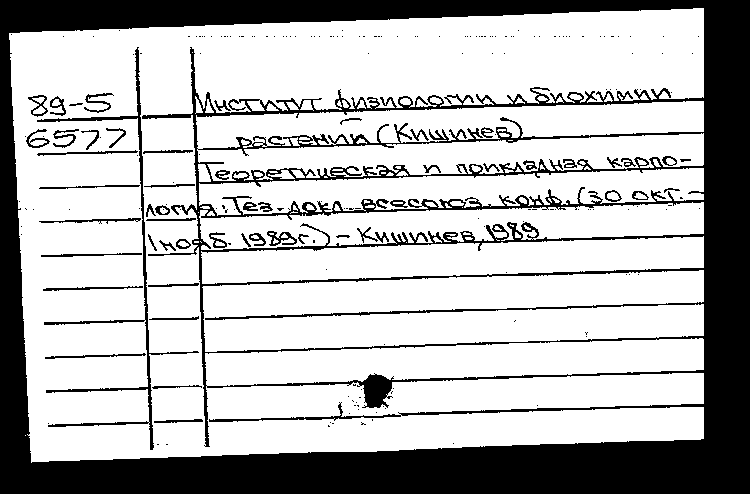 89-5 Институт физиологии и биохимии
6577 растений (Кишинев).
Теоретическая и прикладная карпо-
логия: Тез. докл. всесоюз. конф. (30 окт. -
1 нояб. 1989г.). - Кишинев, 1989.